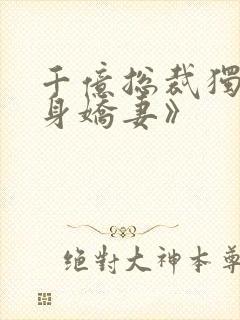 千億總裁獨
身嬌妻》
絕對大神本尊